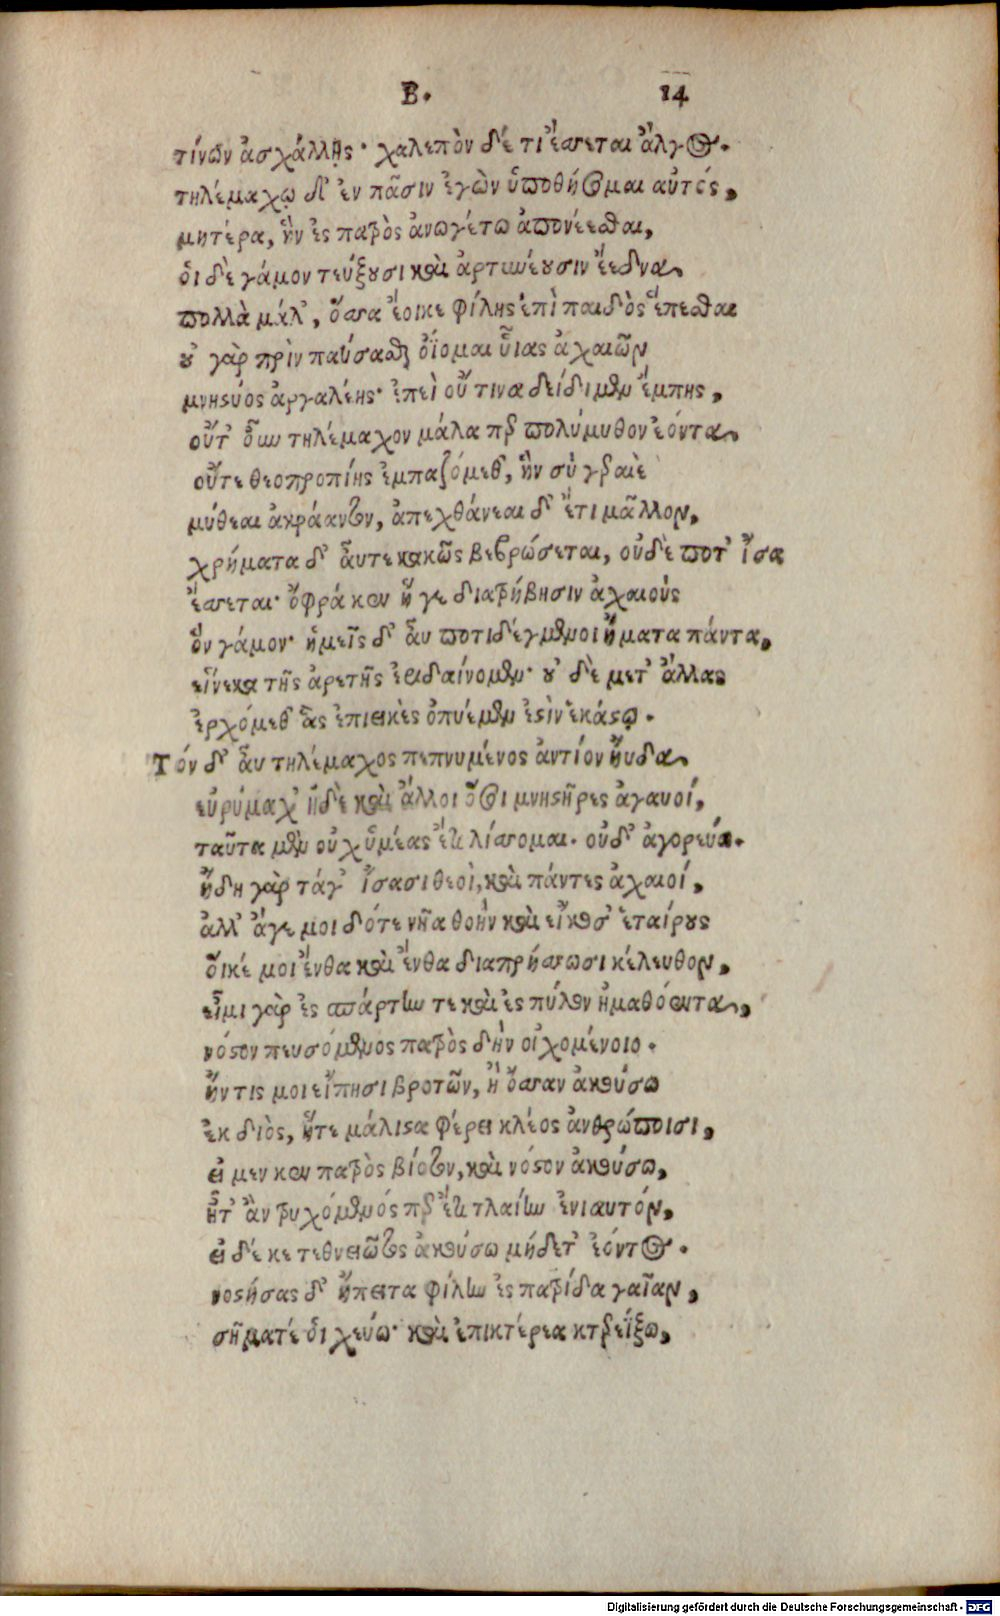 Β. 14
τίνων ἀσχάλλῃς· χαλεπὸν δέ τι ἔσσεται ἄλγος.
τηλέμαχῳ δ' ἐν πᾶσιν ἐγὼν ὑποθήσομαι αὐτός,
μητέρα, ἣν ἐς πατρὸς ἀνωγέτω ἀπονέεσθαι,
ὁι δὲ γάμον τεύξουσι καὶ ἀρτυνέουσιν ἔεδνα
πολλὰ μάλ', ὅσσα ἔοικε φίλης ἐπὶ παιδὸς ἕπεσθαι
οὐ γὰρ πρὶν παύσασθαι ὀΐομαι υἷας ἀχαιῶν
μνηστύος ἀργαλέης· ἐπεὶ οὔ τινα δείδιμεν ἔμπης,
οὔτ' οὖν τηλέμαχον μάλα περ πολύμυθον ἐόντα
οὔτε θεοπροπίης ἐμπαζόμεθ', ἣν σὺ γεραιὲ
μύθεαι ἀκράαντον, ἀπεχθάνεαι δ' ἔτι μᾶλλον,
χρήματα δ' αὖτε κακῶς βεβρώσεται, οὐδὲ ποτ' ἶσα
ἔσσεται· ὄφρά κεν ἥ γε διατρίβησιν ἀχαιοὺς
ὃν γάμον· ἡμεῖς δ' αὖ ποτιδέγμενοι ἤματα πάντα,
εἵνεκα τῆς ἀρετῆς ἐριδαίνομεν· οὐ δὲ μετ' ἄλλας
ἐρχόμεθ' ἃς ἐπιεικὲς ὀπυέμεν ἐστὶν ἑκάστῳ.
Τόν δ' αὖ τηλέμαχος πεπνυμένος ἀντίον ηὔδα
εὐρύμαχ' ἠδὲ καὶ ἄλλοι ὅσοι μνηστῆρες ἀγαυοί,
ταῦτα μὲν οὐχ ὑμέας ἔτι λίσσομαι. οὐδ' ἀγορεύω.
ἤδη γὰρ τάγ' ἴσασι θεοὶ, καὶ πάντες ἀχαιοί,
ἀλλ' ἄγε μοι δότε νῆα θοὴν καὶ εἴκοσ' ἑταίρους
οἵκέ μοι ἔνθα καὶ ἔνθα διαπρήσσωσι κέλευθον,
εἶμι γὰρ ἐς σπάρτην τε καὶ ἐς πύλον ἠμαθόεντα,
νόστον πευσόμενος πατρὸς δὴν οἰχομένοιο.
ἤν τις μοι εἴπησι βροτῶν, ἢ ὄσσαν ἀκούσω
ἐκ διὸς, ἥτε μάλιστα φέρει κλέος ἀνθρώποισι,
εἰ μεν κεν πατρὸς βίοτον, καὶ νόστον ἀκούσω,
ἦτ' ἂν τρυχόμενός περ ἔτι τλαίην ἐνιαυτόν,
εἰ δέ κε τεθνειῶτος ἀκούσω μήδετ' ἐόντος.
νοστήσας δ' ἤπειτα φίλην ἐς πατρίδα γαῖαν,
σῆμα τέ ὁι χεύω· καὶ ἐπικτέρεα κτερεΐξω,
Digitalisierung gefördert durch die Deutsche Forschungsgemeinschaft - DFG